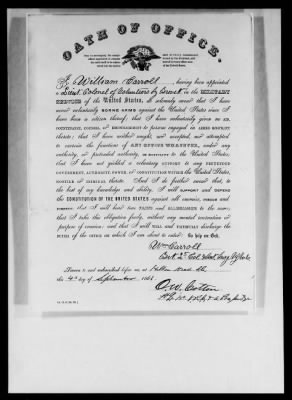 OATH OF OFFICE.
I, William Carroll, having been appointed
a Lieut. Colonel of Volunteers by Brevet in the MILITARY
SERVICE of the United States, do solemnly swear that I have
never voluntarily BORNE ARMS against the United States since I
have been a citizen thereof; that I have voluntarily given no AID,
COUNTENANCE, COUNSEL, or ENCOURAGEMENT to persons engaged in ARMED HOSTILITY
thereto; that I have neither sought, nor accepted, nor attempted
to exercise the functions of ANY OFFICE WHATEVER, under any
authority, or pretended authority, in HOSTILITY to the United States;
that I have not yielded a voluntary support to any PRETENDED
GOVERNMENT, AUTHORITY, POWER, or CONSTITUTION WITHIN the United States,
HOSTILE or INIMICAL thereto. And I do further swear that, to
the best of my knowledge and ability, I will SUPPORT and DEFEND
the CONSTITUTION OF THE UNITED STATES against all ENEMIES, FOREIGN and
DOMESTIC; that I will bear true FAITH and ALLEGIANCE to the same;
that I take this obligation freely, without any mental reservation or
purpose of evasion; and that I will well and faithfully discharge the
DUTIES of the OFFICE on which I am about to enter: So help me God.
Wm Carroll
Brvt Lt Col
Sworn to and subscribed before me, at Hilton Head SC
this 4th day of September 186
O. W. Cotton